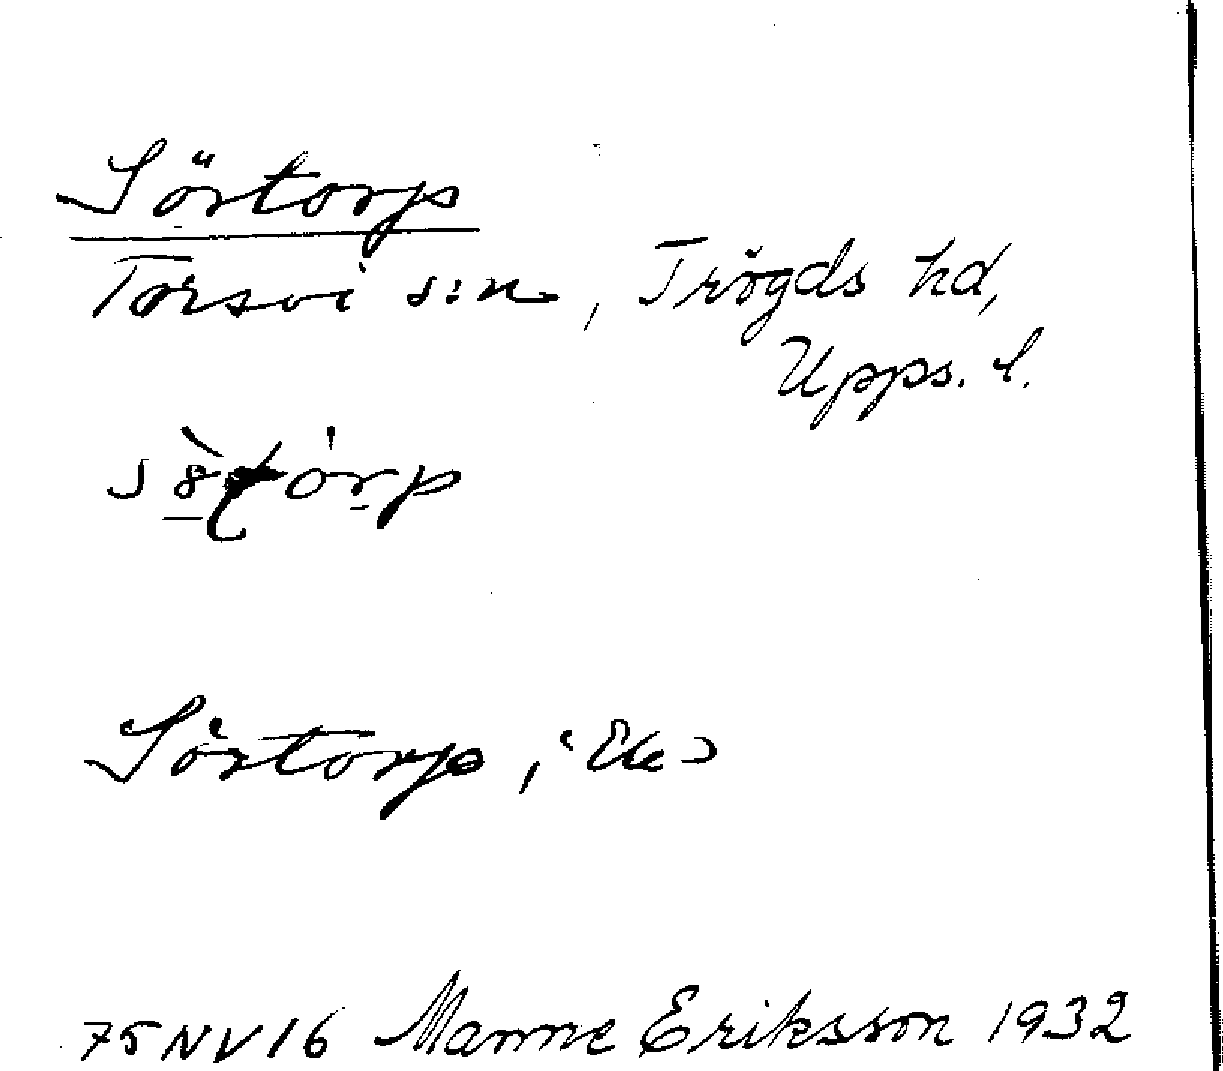 Sörtorp
Torsvi s:n, Trögds hd,
Upps. l.
Sörtorp, Ek
75 NV 16 Manne Eriksson 1932